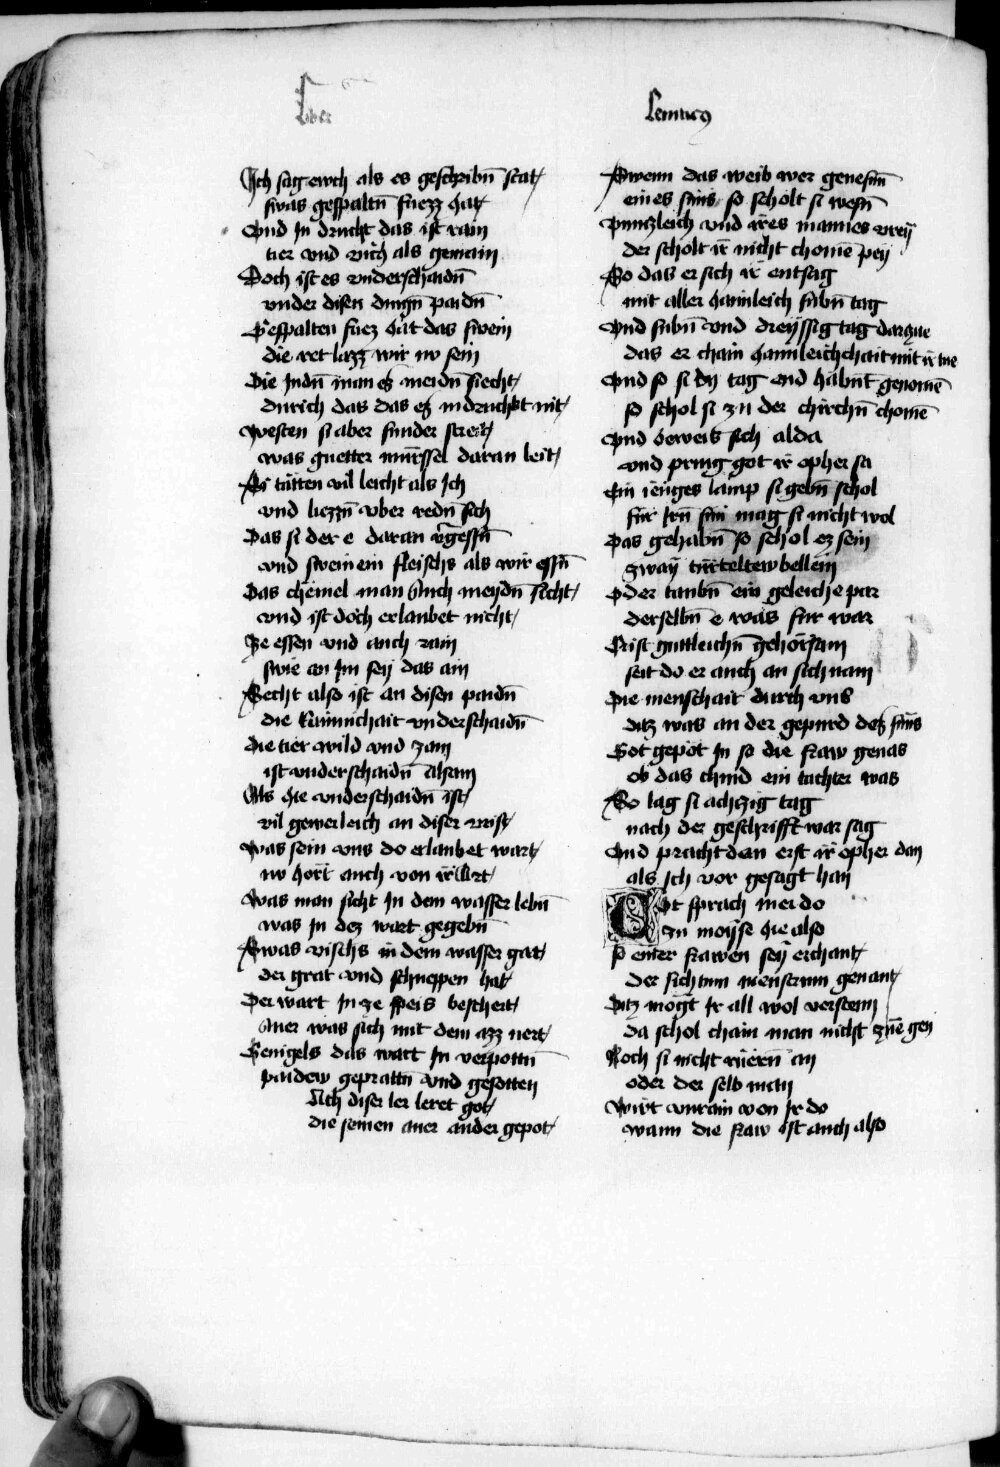 Liber
Leuiticus
Ich sag ewch als es geschribn̄ stat
swas gespaltn̄ fuezz hat
Vnd In druckt das ist rain
tier vnd vich als gemain
Doch ist es vnderschaidn̄
vnder disen dingn̄ paidn̄
Gespalten fuez hat das swein
die ret lazz wir nv sein
Die Judn̄ man ez meidn̄ siecht
durich das das ez nidruckt nit
Westen si aber sunder streit
was guetter mürssel daran leit
Si tätten vil leicht als Ich
vnd liezzn̄ vber redn̄ sich
Das si der e daran v̄gessn̄
vnd swein ein fleischs als wir essn̄
Das chemel man auch meydn̄ sicht
vnd ist doch erlaubet nicht
Ze essen vnd auch rain
swie an Im sey das ain
Secht also ist an disen paidn̄
die Rainnichait vnderschaidn̄
Die tier wild vnd zam
ist vnderschaidn̄ alsam
Als hie vnderschaidn̄ ist
vil gewerleich an diser vrist
Was sein vns do erlaubet wart
nv hört auch von ir art
Was man sicht In dem wasser lebn̄
was In dez wart gegebn̄
Swas vischs in dem wasser gat
der grat vnd schueppen hat
Der wart In ze speis beschert
Auer was sich mit dem azz nert
Genigels das wart In verpotn̄
paidew gepratn̄ vnd gesotten
Nach diser ler leret got
die seinen auer ander gepot
Swenn das weib wer genesn̄
eines suns so scholt si wesn̄
Vnnzleich vnd ires mannes vrey
der scholt ir nicht chomē pey
So das er sich ir entsag
mit aller haimleich sibn̄ tag
Vnd sibn̄ vnd dreyssig tag darzue
das er chain haimleichchait mit ir tue
Vnd so si dy tag end habnt genomē
so schol si zu der chirchn̄ chomē
Vnd beweis sich alda
vnd pring got ir opher sa
Ein ieriges lamp si gebn̄ schol
für irn̄ sun mag si nicht wol
Das gehabn̄ so schol ez sein
zway türteltewbellein
Oder taubn̄ ein geleiche par
derselbn̄ e was für war
Crist guttleichn̄ gehorsam
seit do er auch an sich nam
Die menschait durch vns
ditz was an der gepurd dez suns
Got gepot In so die fraw genas
ob das chind ein tachter was
So lag si achzig tag
nach der geschrifft war sag
Vnd pracht dan erst ir opher dan
als Ich vor gesagt han
Got sprach mer do
zu moyse hie also
So einer frawen sey erchant
der sichtum menstrum genant
Ditz mögt Ir all wol versten
da schol chain man nicht zue gen
Noch si nicht rüern̄ an
oder der selb man
Wirt vnrain von Ir do
wann die fraw ist auch also